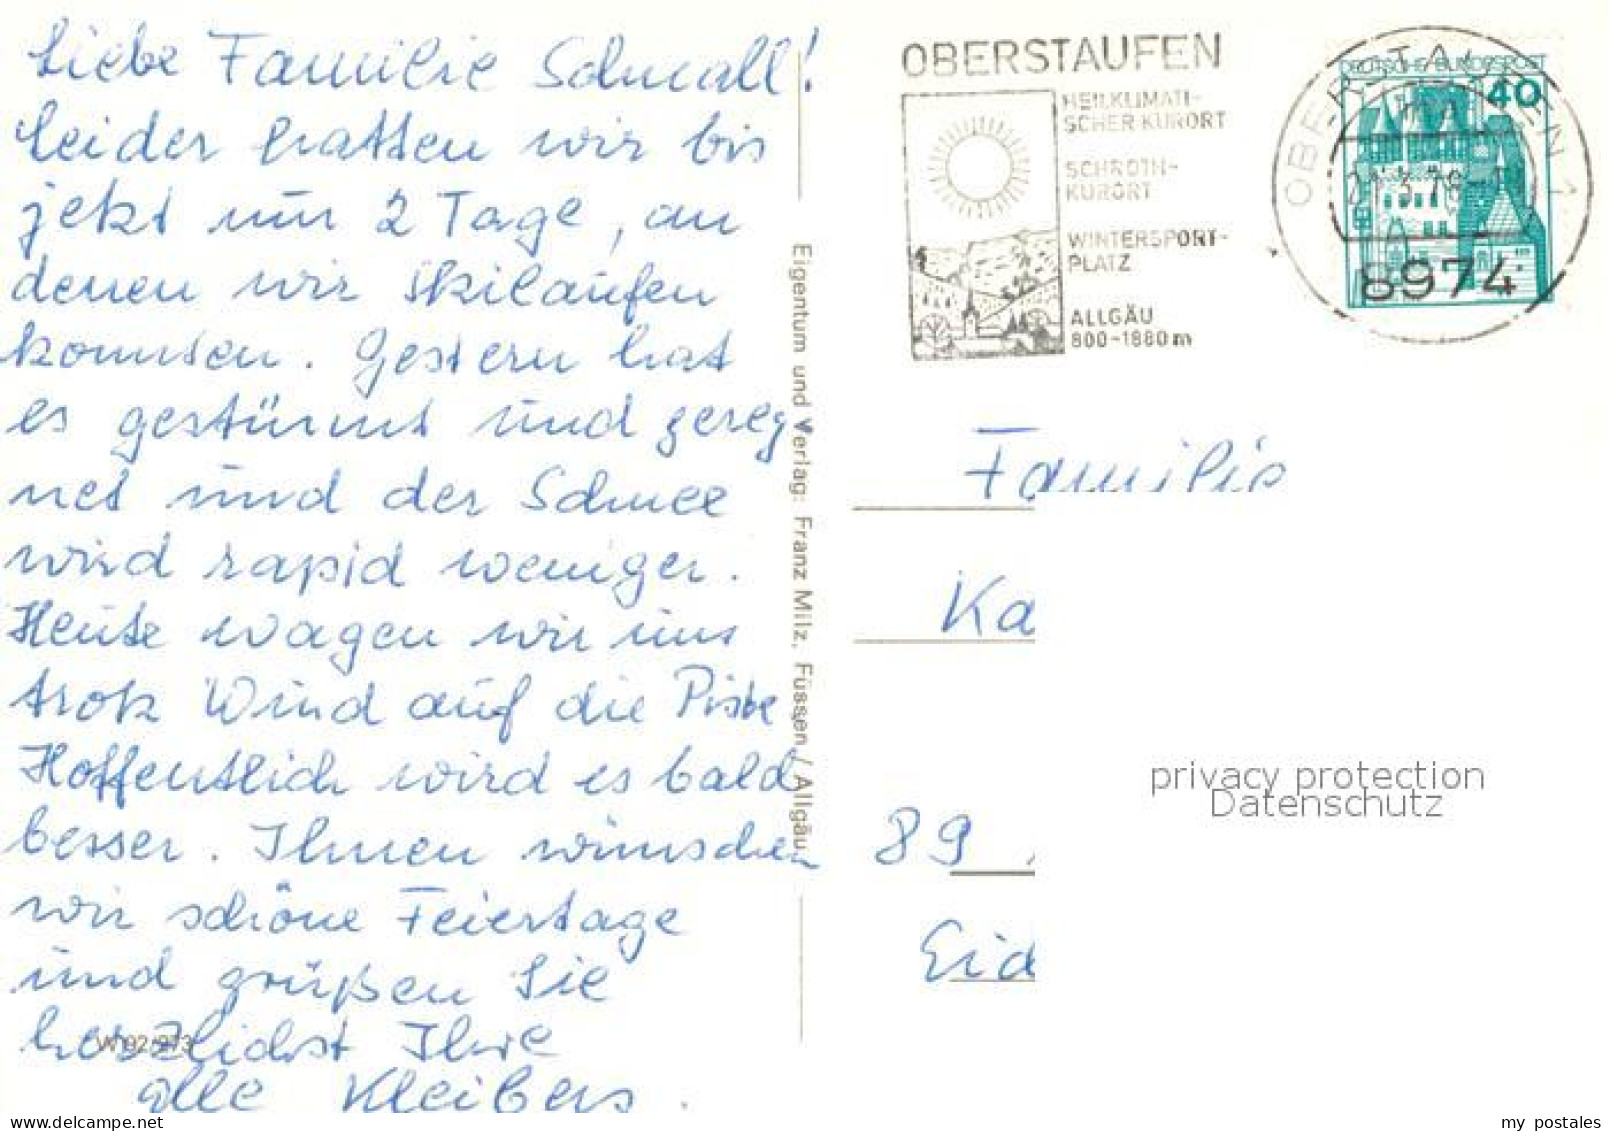 Liebe Familie Schmall!
Leider hatten wir bis
jetzt nur 2 Tage, an
denen wir skilaufen
konnten. Gestern hat
es gestürmt und gereg
net und der Schnee
wird rapid weniger.
Heute wagen wir uns
trotz Wind auf die Piste
Hoffentlich wird es bald
besser. Ihnen wünschen
wir schöne Feiertage
und grüßen Sie
herzlichst Ihre
alle Kleibers.
W 92/973
Eigentum und Verlag: Franz Milz, Füssen / Allgäu
OBERSTAUFEN
HEILKLIMATI-
SCHER KURORT
SCHROTH-
KURORT
WINTERSPORT-
PLATZ
ALLGÄU
800-1880 m
DEUTSCHE BUNDESPOST
40
OBERSTAUFEN 1
8974
Familie
Ka
89
Eid
privacy protection
Datenschutz
my postales